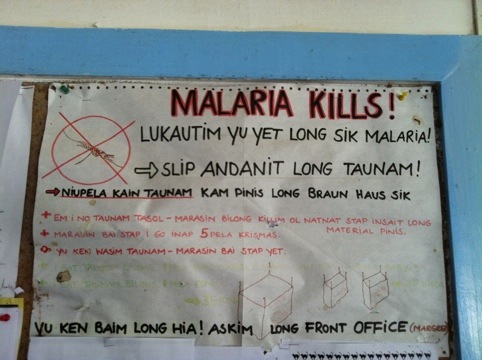 MALARIA KILLS!
LUKAUTIM YU YET LONG SIK MALARIA!
⇨ SLIP ANDANIT LONG TAUNAM!
⇨ NIUPELA KAIN TAUNAM KAM PINIS LONG BRAUN HAUS SIK
+ EM I NO TAUNAM TASOL – MARASIN BILONG KILLIM OL NATNAT STAP INSAIT LONG MATERIAL PINIS.
+ MARASIN BAI STAP I GO INAP 5PELA KRISMAS.
YU KEN WASIM TAUNAM – MARASIN BAI STAP YET.
YU KEN BAIM LONG HIA! ASKIM LONG FRONT OFFICE